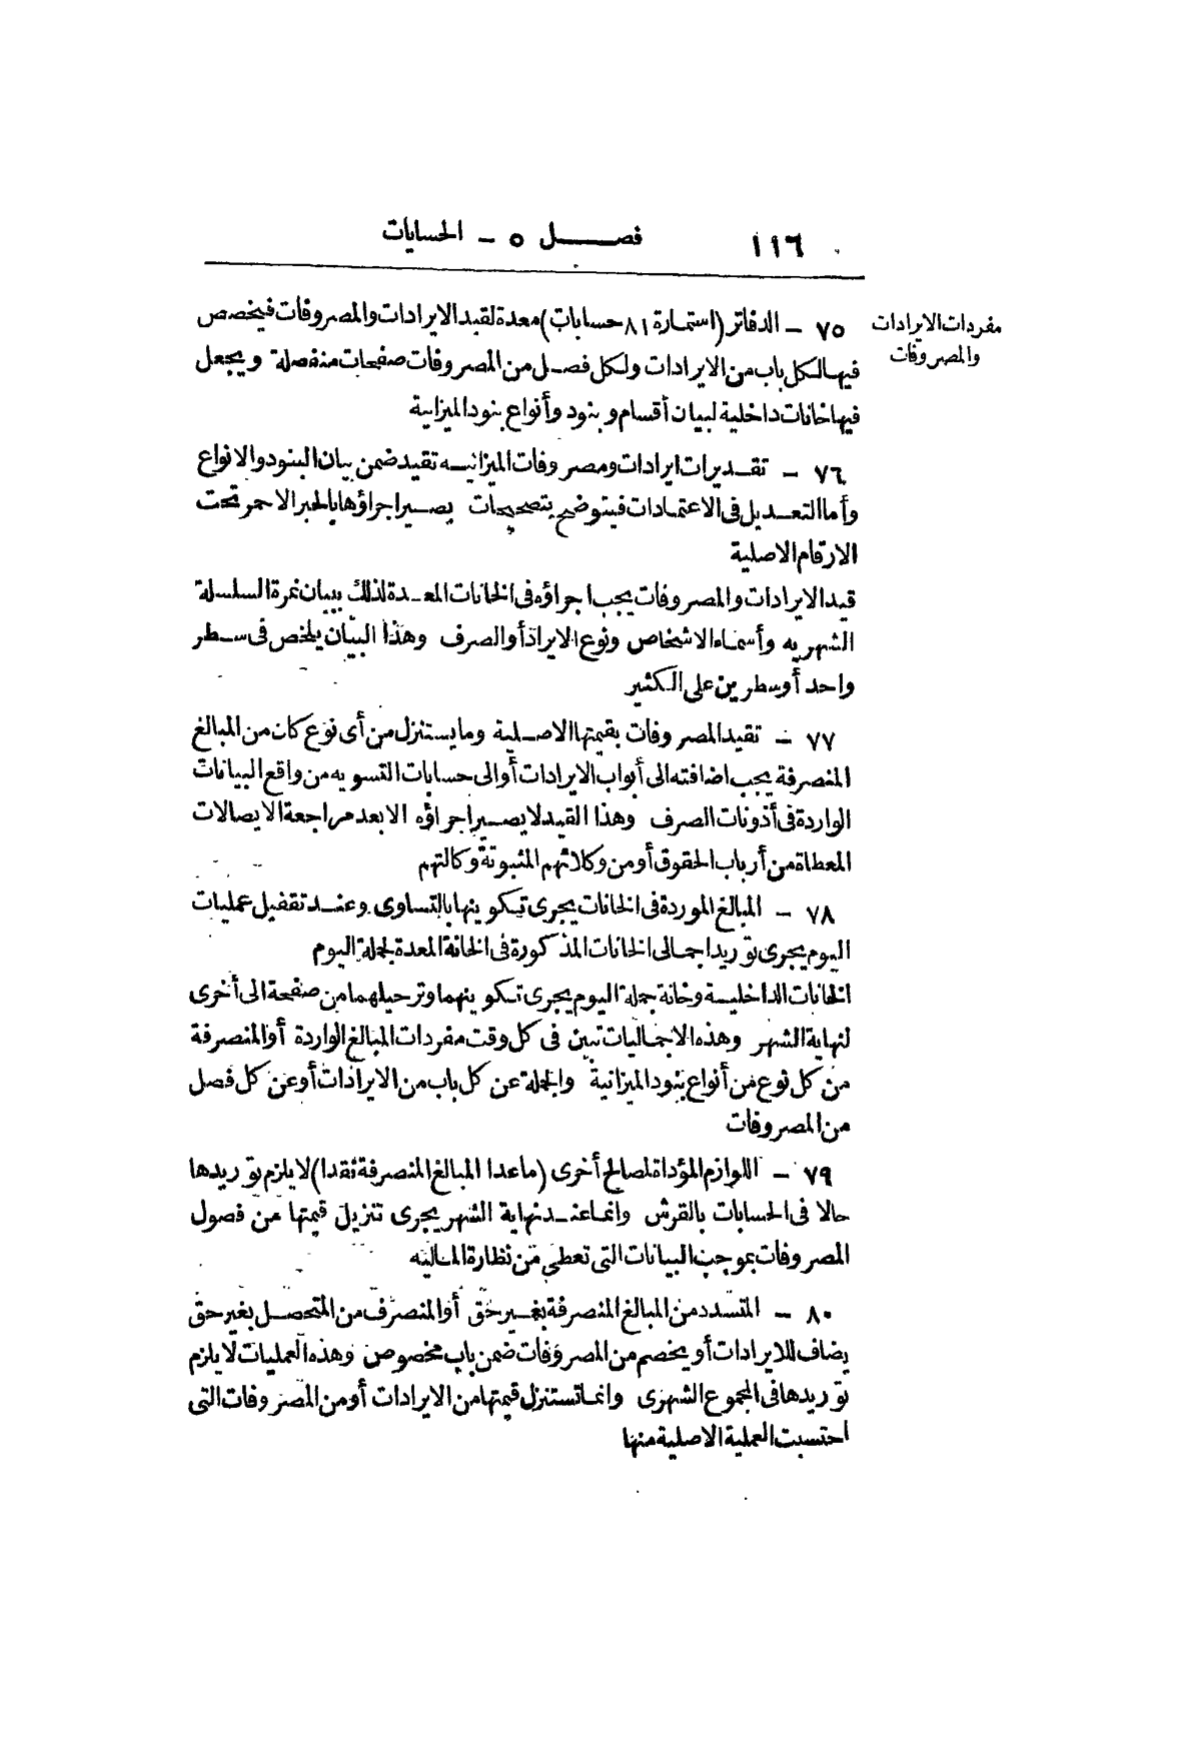 ١١٦ فصل ٥ - الحسابات
مفردات الايرادات
والمصروفات
٧٥ - الدفاتر (استمارة ٨١ حسابات) معدة لقيد الايرادات والمصروفات فيخصص
فيها لكل باب من الايرادات ولكل فصل من المصروفات صفحات منفصلة ويجعل
فيها خانات داخلية لبيان أقسام وبنود وأنواع بنود الميزانية
٧٦ - تقديرات ايرادات ومصروفات الميزانيه تقيد ضمن بيان البنود والانواع
وأما التعديل فى الاعتمادات فيتوضح بتصحيحات يصير اجراؤها بالحبر الاحمر تحت
الارقام الاصلية
قيد الايرادات والمصروفات يجب اجراؤه فى الخانات المعدة لذلك ببيان نمرة السلسلة
الشهريه وأسماء الاشخاص ونوع الايراد أو الصرف وهذا البيان يلخص فى سطر
واحد أو سطرين على الكثير
٧٧ - تقيد المصروفات بقيمتها الاصلية وما يستنزل من أى نوع كان من المبالغ
المنصرفة يجب اضافته الى أبواب الايرادات أو الى حسابات التسويه من واقع البيانات
الواردة فى أذونات الصرف وهذا القيد لا يصير اجراؤه الا بعد مراجعة الايصالات
المعطاة من أرباب الحقوق أو من وكلائهم المثبوتة وكالتهم
٧٨ - المبالغ الموردة فى الخانات يجرى تكوينها بالتساوى وعند تقفيل عمليات
اليوم يجرى توريد اجمالى الخانات المذكورة فى الخانة المعدة لجملة اليوم
الخانات الداخلية وخانة جملة اليوم يجرى تكوينهما وترحيلهما من صفحة الى أخرى
لنهاية الشهر وهذه الاجماليات تبين فى كل وقت مفردات المبالغ الواردة أو المنصرفة
من كل نوع من أنواع بنود الميزانية والجملة عن كل باب من الايرادات أو عن كل فصل
من المصروفات
٧٩ - اللوازم المؤداة لمصالح أخرى (ما عدا المبالغ المنصرفة نقدا) لا يلزم توريدها
حالا فى الحسابات بالقرش وانما عند نهاية الشهر يجرى تنزيل قيمتها من فصول
المصروفات بموجب البيانات التى تعطى من نظارة الماليه
٨٠ - المتسدد من المبالغ المنصرفة بغير حق أو المنصرف من المتحصل بغير حق
يضاف للايرادات أو يخصم من المصروفات ضمن باب مخصوص وهذه العمليات لا يلزم
توريدها فى المجموع الشهرى وانما تستنزل قيمتها من الايرادات أو من المصروفات التى
احتسبت العملية الاصلية منها